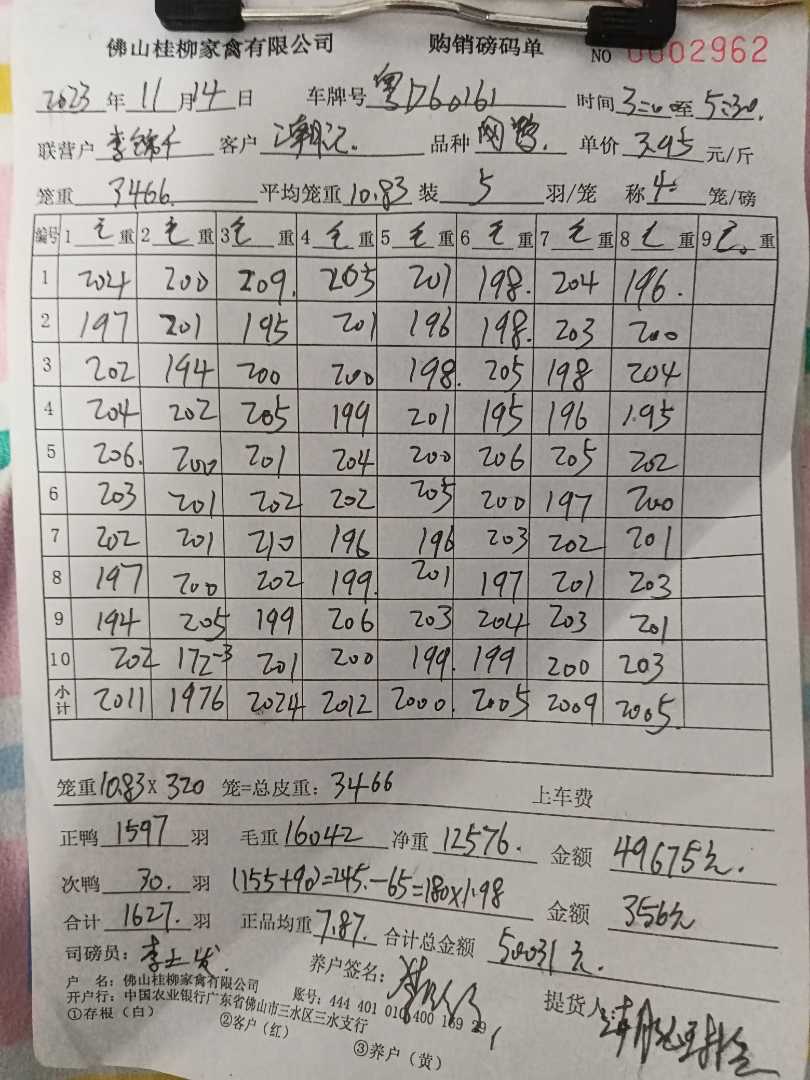 佛山桂柳家禽有限公司 购销磅码单 NO 0002962
2023年11月14日 车牌号 粤D60161 时间3:00至5:30.
联营户 李锦千 客户 品种 单价 3.95 元/斤
笼重 3466. 平均笼重 10.83 装 5 羽/笼 称 4 笼/磅
编号 1 毛重 2 毛重 3 毛重 4 毛重 5 毛重 6 毛重 7 毛重 8 毛重 9 毛重
1 204 200 209. 203 201 198. 204 196.
2 197 201 195 201 196 198. 203 200
3 202 194 200 200 198. 205 198 204
4 204 202 205 199 201 195 196 195
5 206. 200 201 204 200 206 205 202
6 203 201 202 202 205 200 197 200
7 202 201 210 196 196 203 202 201
8 197 200 202 199. 201 197 201 203
9 194 205 199 206 203 204 203 201
10 202 172-3 201 200 199. 199 200 203
小计 2011 1976 2024 2012 2000. 2005 2009 2005.
笼重10.83×320 笼=总皮重:3466 上车费
正鸭 1597 羽 毛重16042 净重 12576. 金额 49675元.
次鸭 30. 羽 (155+90)=245.-65=180×1.98 金额 356元
合计 1627. 羽 正品均重 7.87. 合计总金额 50031元.
司磅员: 养户签名: 提货人:
户 名:佛山桂柳家禽有限公司 账号:444 401 010 400 169 29
开户行:中国农业银行广东省佛山市三水区三水支行
①存根(白) ②客户(红) ③养户(黄)